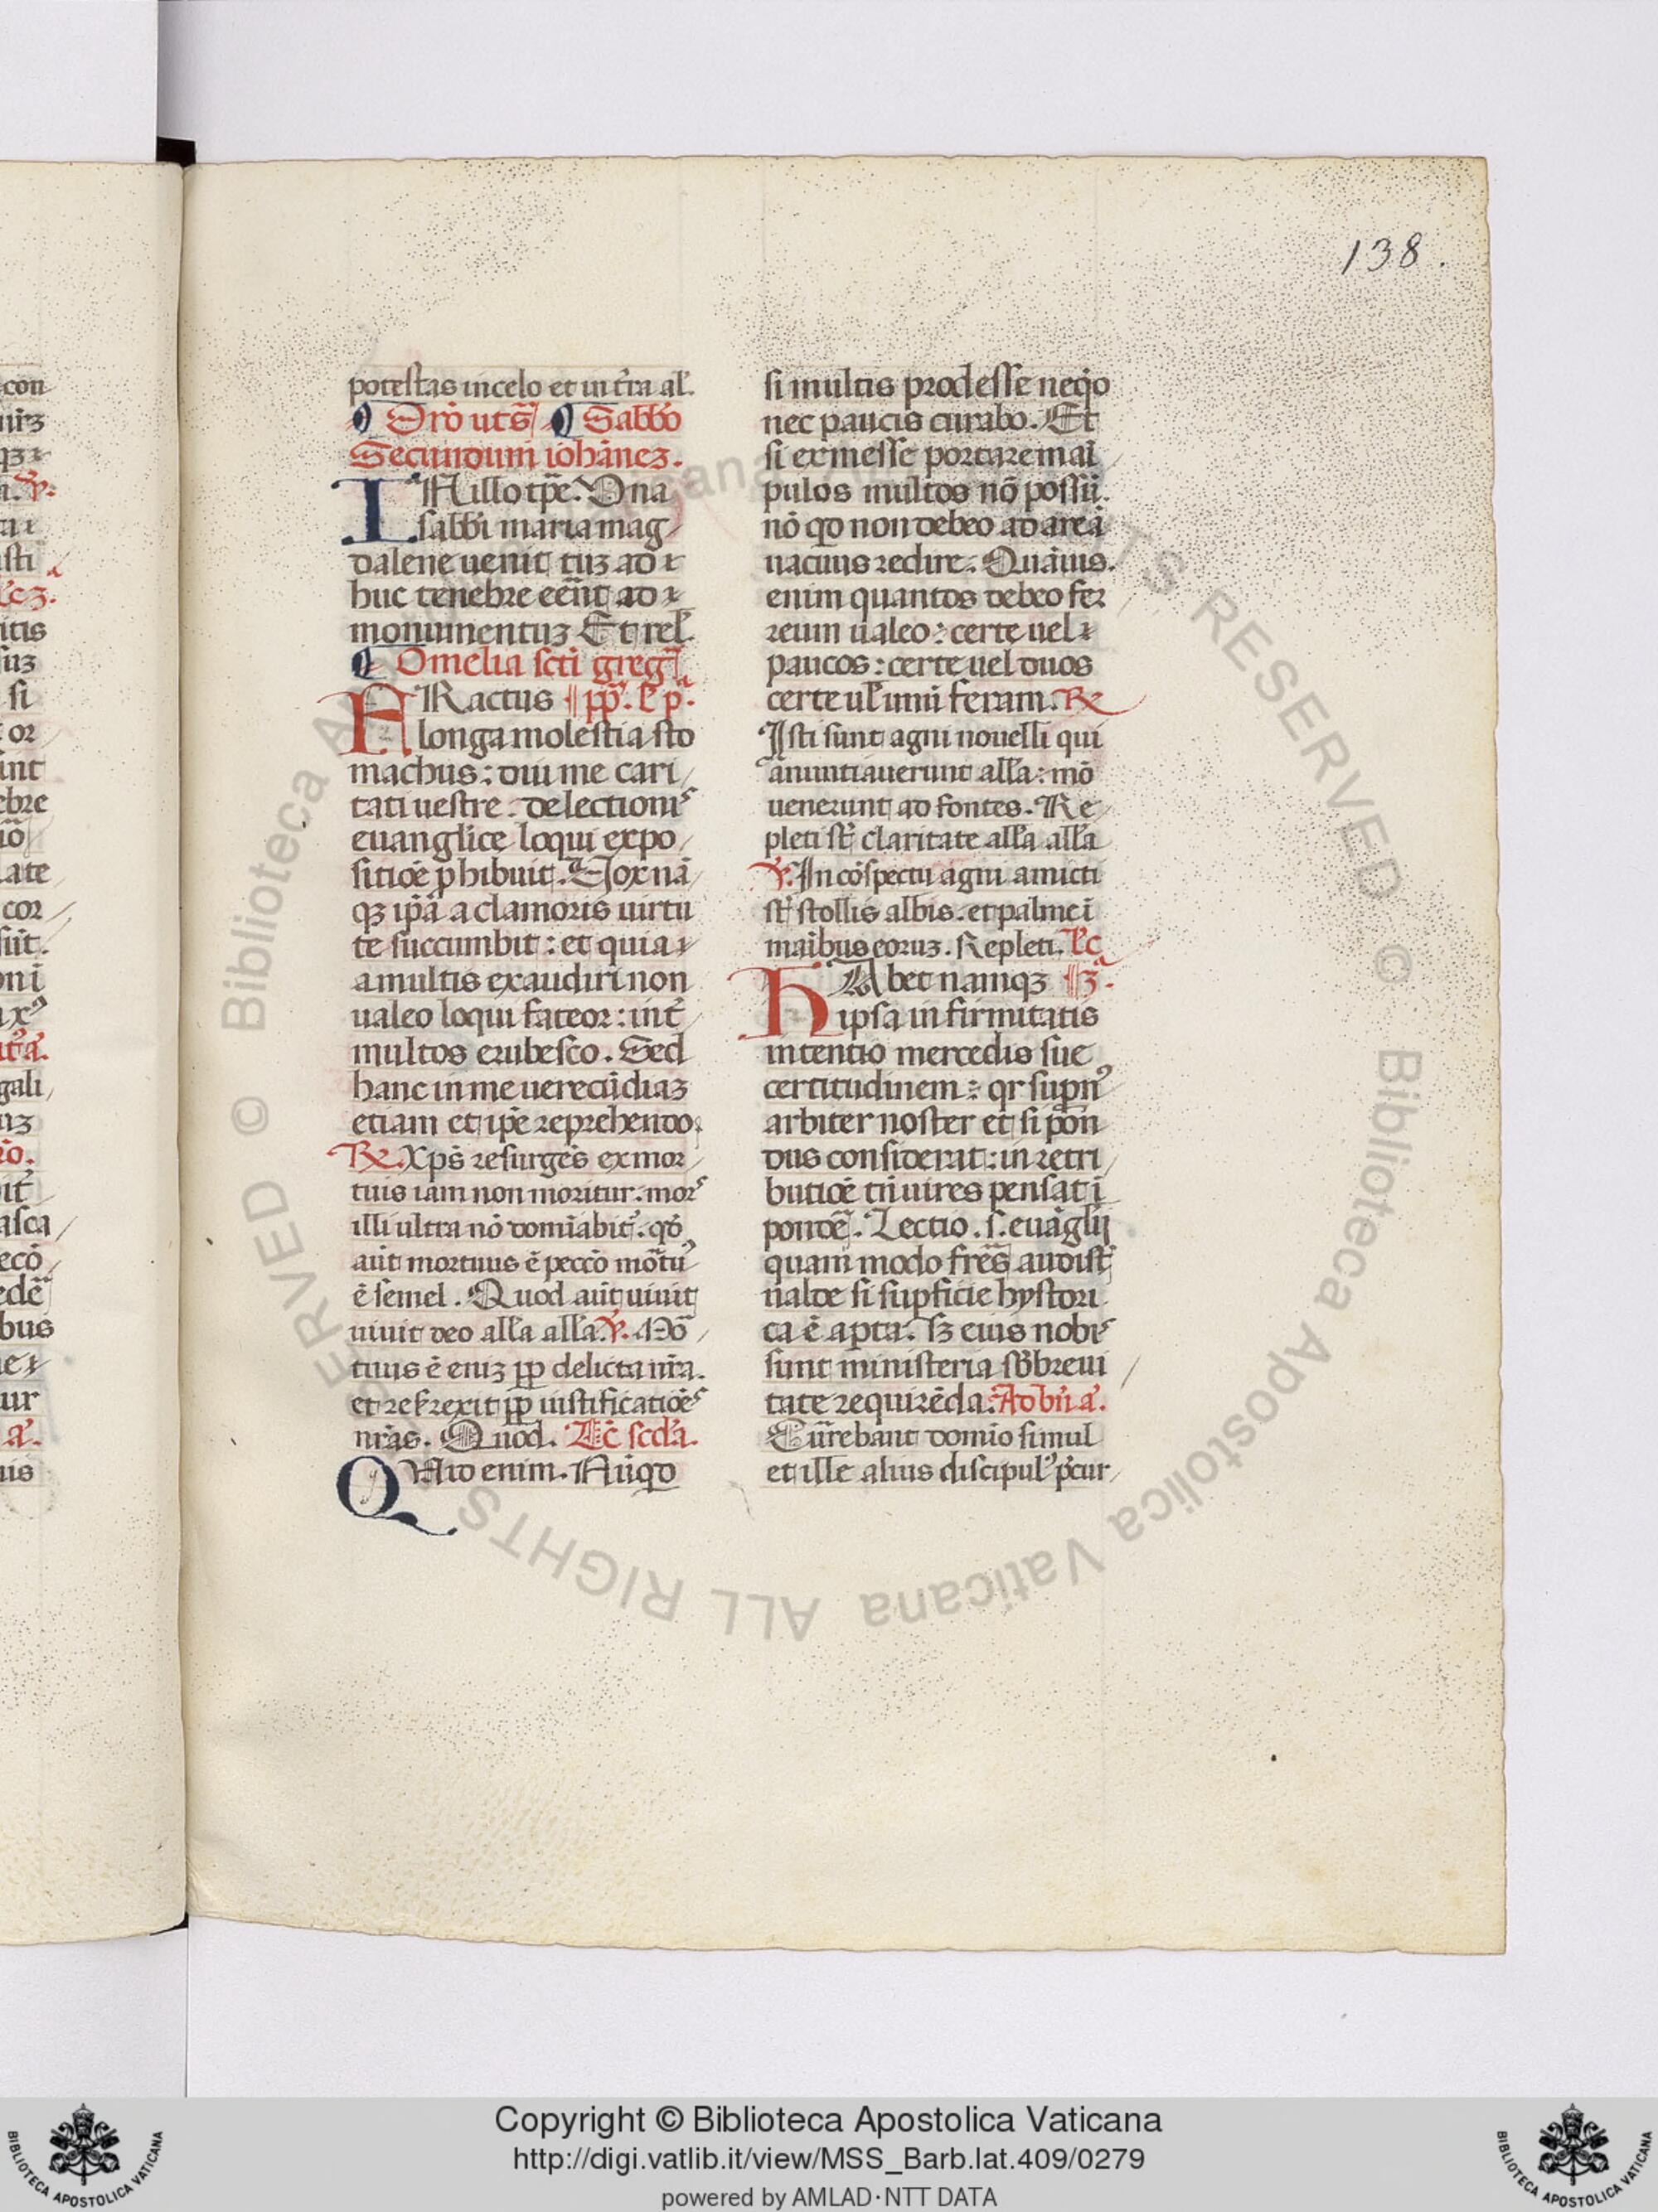 138.
potestas in celo et in t̃ra al̃.
Or̃o ut s̃ Sabb̃o
Secundum ioh̃anez.
IN illo tp̃e. Una
sabb̃i maria mag
dalene uenit cuz ad
huc tenebre ee̅nt ad
monumentuz Et rel̃.
Omelia sc̃ti greg̃
FRactus pp̃. l̃ p.ª
longa molestia sto
machus: diu me cari
tati uestre: de lectionis
euanglice loqui expo
sitiõe ꝓhibuit. Uox nã
qz ip̃a a clamoris uirtu
te succumbit: et quia
a multis exaudiri non
ualeo loqui fateor: int̃
multos erubesco. Sed
hanc in me uerecũdiaz
etiam et ip̃e reprehendo.
℟. Xp̃s resurgẽs ex mor
tuis iam non moritur. mors
illi ultra nõ domĩabit᷑. qõ
aũt mortuus ẽ pecc̃o mõtuꝰ
ẽ semel. Quod aũt uiuit
uiuit deo all̃a all̃a. ℣. Mõ
tuus ẽ eniz ꝓp delicta nr̃a.
et resrexit ꝓp iustificatiões
nr̃as. Quod. Lc̃ scd̃a.
QUid enim. Nũqd
si multis prodesse neqo
nec paucis curabo. Et
si ex messe portare mãi
pulos multos nõ possũ.
nõ qd non debeo ad areã
uacuus redire. Quãuis.
enim quantos debeo fer
re um ualeo: certe uel
paucos: certe uel duos
certe ul̃ unũ feram. ℟
Isti sunt agni nouelli qui
anuntiauerunt all̃a: mõ
uenerunt ad fontes. Re
pleti st̃ claritate all̃a all̃a
℣. In cõspectu agni amicti
st̃ stollis albis. et palme ĩ
mãibus eoruz. Repleti. Lc̃
HAbet namqz 3.ª
ipsa infirmitatis
intentio mercedis sue
certitudinem: qr supnꝰ
arbiter noster et si põn
dus considerat: in retri
butiõe tñ uires pensat ĩ
pondẽ. Lectio. s. euãglij
quam modo frẽs audist̃
ualde si supficie hystori
ca ẽ apta. Sz eius nobis
sunt ministeria sb̃ breui
tate requirẽda. Ad bñ a.
Currebant domio simul
et ille alius discipulꝰ p̃cur
con
sti
itis
si
or
int
ebre
late
cor
oni
gali
asca
bus
ur
Copyright © Biblioteca Apostolica Vaticana
http://digi.vatlib.it/view/MSS_Barb.lat.409/0279
powered by AMLAD·NTT DATA
BIBLIOTECA APOSTOLICA VATICANA
BIBLIOTECA APOSTOLICA VATICANA
© Biblioteca Apostolica Vaticana ALL RIGHTS RESERVED